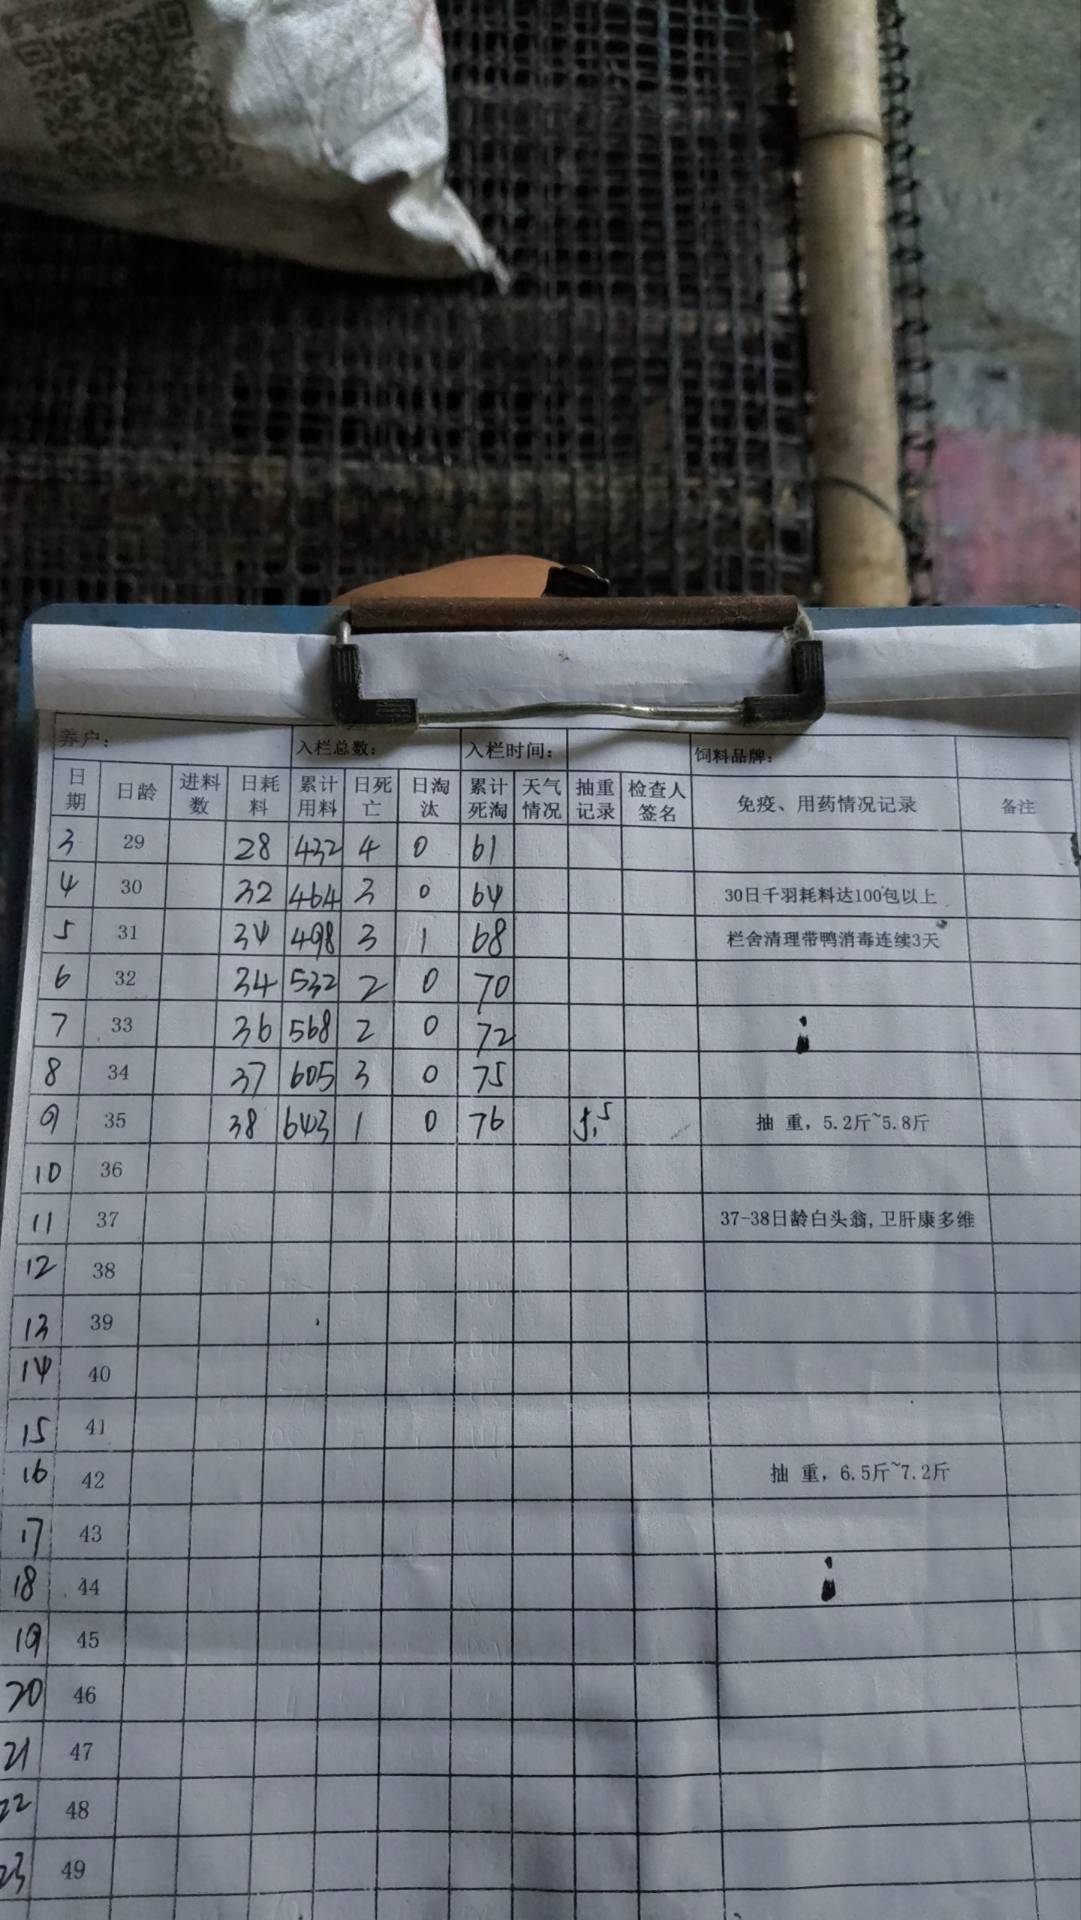 养户： 入栏总数： 入栏时间： 饲料品牌：
日期 日龄 进料数 日耗料 累计用料 日死亡 日淘汰 累计死淘 天气情况 抽重记录 检查人签名 免疫、用药情况记录 备注
3 29 28 432 4 0 61
4 30 32 464 3 0 64 30日千羽耗料达100包以上
5 31 34 498 3 1 68 栏舍清理带鸭消毒连续3天
6 32 34 532 2 0 70
7 33 36 568 2 0 72
8 34 37 605 3 0 75
9 35 38 643 1 0 76 5.5 抽 重，5.2斤~5.8斤
10 36
11 37 37-38日龄白头翁,卫肝康多维
12 38
13 39
14 40
15 41
16 42 抽 重，6.5斤~7.2斤
17 43
18 44
19 45
20 46
21 47
22 48
23 49